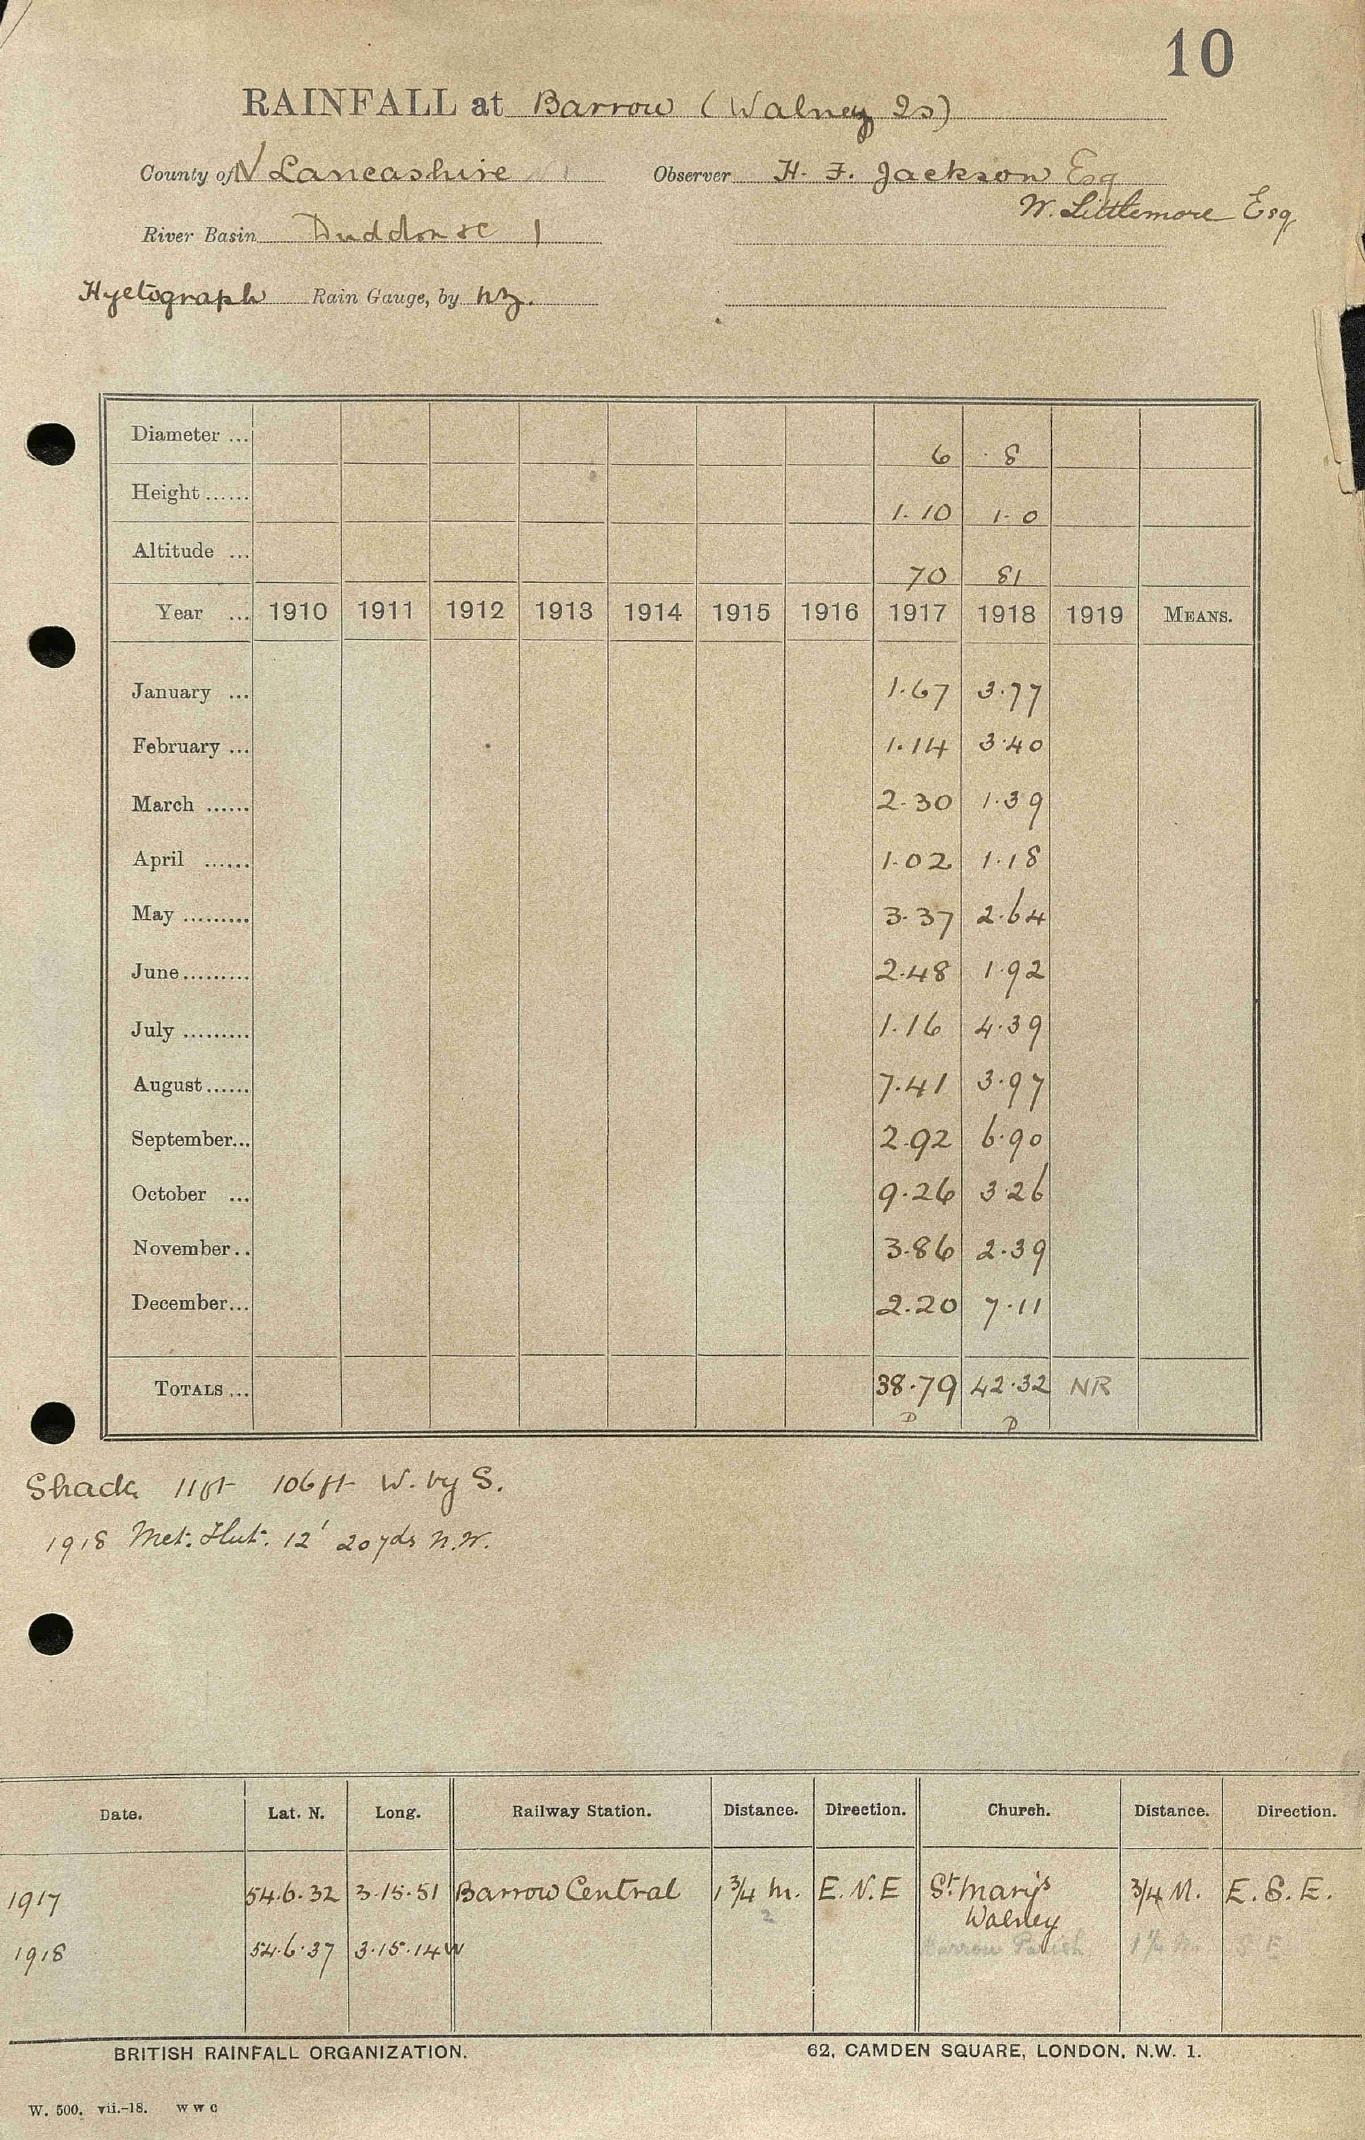 10
RAINFALL at Barrow (Walney Is)
County of N Lancashire Observer H. F. Jackson Esq
W. Littlemore Esq
River Basin Duddon &c 1
Hyetograph Rain Gauge, by nz.
Diameter ... 6 8
Height ...... 1.10 1.0
Altitude ... 70 81
Year ... 1910 1911 1912 1913 1914 1915 1916 1917 1918 1919 MEANS.
January ... 1.67 3.77
February ... 1.14 3.40
March ...... 2.30 1.39
April ...... 1.02 1.18
May ......... 3.37 2.64
June......... 2.48 1.92
July ......... 1.16 4.39
August...... 7.41 3.97
September... 2.92 6.90
October ... 9.26 3.26
November.. 3.86 2.39
December... 2.20 7.11
TOTALS ... 38.79 42.32 NR
D D
Shade 11ft 106ft W. by S.
1918 Met. Hut. 12' 20yds N.W.
Date. Lat. N. Long. Railway Station. Distance. Direction. Church. Distance. Direction.
1917 54.6.32 3.15.51 Barrow Central 1 3/4 m. E.N.E St Mary's 3/4 M. E.S.E.
2 Walney
1918 54.6.37 3.15.14 W Barrow Parish 1 1/4 m. S E
BRITISH RAINFALL ORGANIZATION. 62, CAMDEN SQUARE, LONDON, N.W. 1.
W. 500. vii.-18. W W C